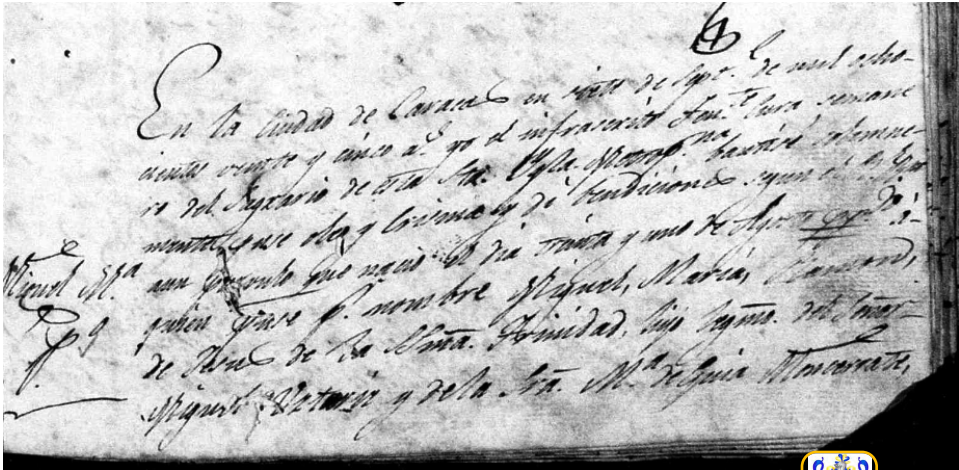 En la Ciudad de Caracas en veinte de Sepre. de mil ocho-
cientos veinte y cinco a.s yo el infrascrito Tente. Cura semane
ro del Sagrario de esta Sta. Ygla. Metropna. bautisé solemne-
mente, puse oleo y Crisma, y dí bendiciones segun el
Miguel Ma.
a un parvulo que nació el día treinta y uno de Agosto á
quien puse pr. nombre Miguel, María, Ramon,
de Jesus de la Sma. Trinidad, hijo legmo. del Señor
Miguel y de la Sra. Ma. de Guia Moncerrate,